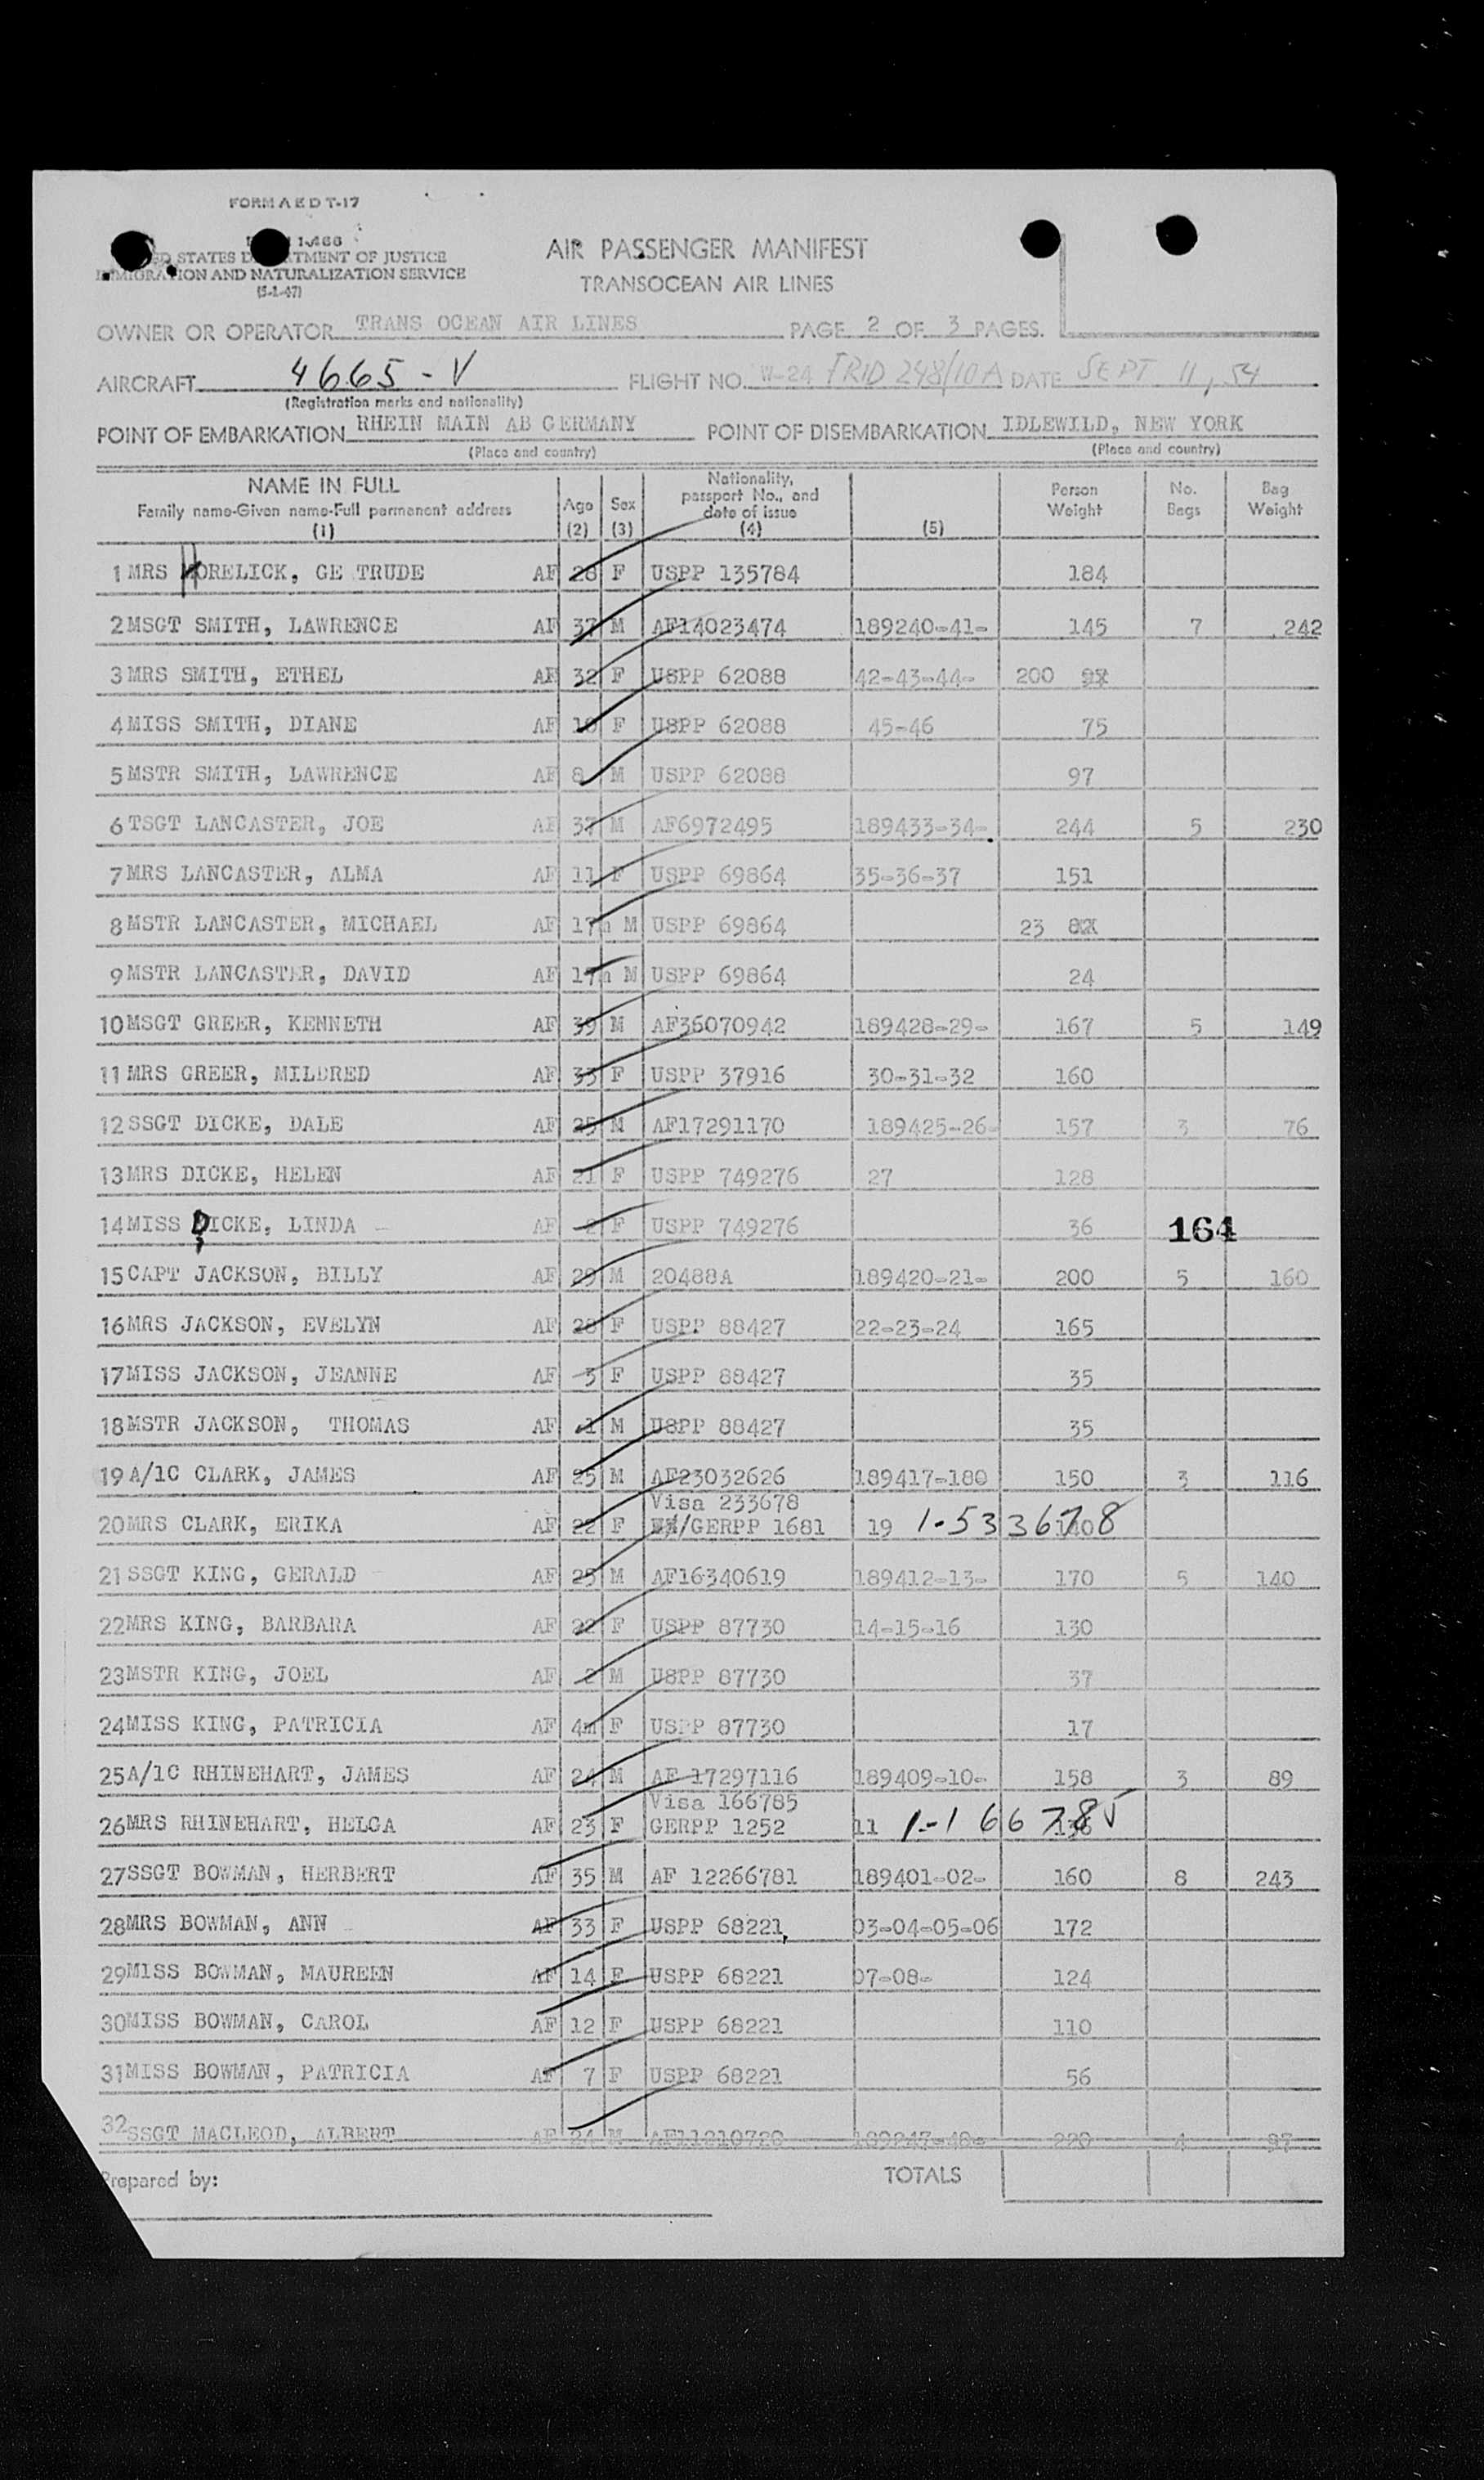 FORM A E D T-17
1-466
STATES DEPARTMENT OF JUSTICE
IMMIGRATION AND NATURALIZATION SERVICE
(5-1-47)
AIR PASSENGER MANIFEST
TRANSOCEAN AIR LINES
OWNER OR OPERATOR TRANS OCEAN AIR LINES PAGE 2 OF 3 PAGES.
AIRCRAFT 4665-V FLIGHT NO. W-24 TRID 248/10A DATE SEPT 11, 54
(Registration marks and nationality)
POINT OF EMBARKATION RHEIN MAIN AB GERMANY POINT OF DISEMBARKATION IDLEWILD, NEW YORK
(Place and country) (Place and country)
NAME IN FULL Family name-Given name-Full permanent address (1) Age (2) Sex (3) Nationality, passport No., and date of issue (4) (5) Person Weight No. Bags Bag Weight
1 MRS HORELICK, GE TRUDE AF 28 F USPP 135784 184
2 MSGT SMITH, LAWRENCE AF 37 M AF14023474 189240-41- 145 7 242
3 MRS SMITH, ETHEL AF 32 F USPP 62088 42-43-44- 200
4 MISS SMITH, DIANE AF 10 F USPP 62088 45-46 75
5 MSTR SMITH, LAWRENCE AF 8 M USPP 62088 97
6 TSGT LANCASTER, JOE AF 37 M AF6972495 189433-34- 244 5 230
7 MRS LANCASTER, ALMA AF 11 F USPP 69864 35-36-37 151
8 MSTR LANCASTER, MICHAEL AF 17m M USPP 69864 23
9 MSTR LANCASTER, DAVID AF 17m M USPP 69864 24
10 MSGT GREER, KENNETH AF 39 M AF36070942 189428-29- 167 5 149
11 MRS GREER, MILDRED AF 33 F USPP 37916 30-31-32 160
12 SSGT DICKE, DALE AF 25 M AF17291170 189425-26- 157 3 76
13 MRS DICKE, HELEN AF 21 F USPP 749276 27 128
14 MISS DICKE, LINDA AF 2 F USPP 749276 36 164
15 CAPT JACKSON, BILLY AF 29 M 20488A 189420-21- 200 5 160
16 MRS JACKSON, EVELYN AF 28 F USPP 88427 22-23-24 165
17 MISS JACKSON, JEANNE AF 3 F USPP 88427 35
18 MSTR JACKSON, THOMAS AF 1 M USPP 88427 35
19 A/1C CLARK, JAMES AF 25 M AF23032626 189417-180 150 3 116
Visa 233678
20 MRS CLARK, ERIKA AF 22 F /GERPP 1681 19 1-533678 140
21 SSGT KING, GERALD AF 25 M AF16340619 189412-13- 170 5 140
22 MRS KING, BARBARA AF 22 F USPP 87730 14-15-16 130
23 MSTR KING, JOEL AF 2 M USPP 87730 37
24 MISS KING, PATRICIA AF 4m F USPP 87730 17
25 A/1C RHINEHART, JAMES AF 24 M AF 17297116 189409-10- 158 3 89
Visa 166785
26 MRS RHINEHART, HELGA AF 23 F GERPP 1252 11 1-166785 136
27 SSGT BOWMAN, HERBERT AF 35 M AF 12266781 189401-02- 160 8 243
28 MRS BOWMAN, ANN AF 33 F USPP 68221 03-04-05-06 172
29 MISS BOWMAN, MAUREEN AF 14 F USPP 68221 07-08- 124
30 MISS BOWMAN, CAROL AF 12 F USPP 68221 110
31 MISS BOWMAN, PATRICIA AF 7 F USPP 68221 56
32 SSGT MACLEOD, ALBERT AF 24 M AF11210720 189247-48- 220 4 97
Prepared by: TOTALS